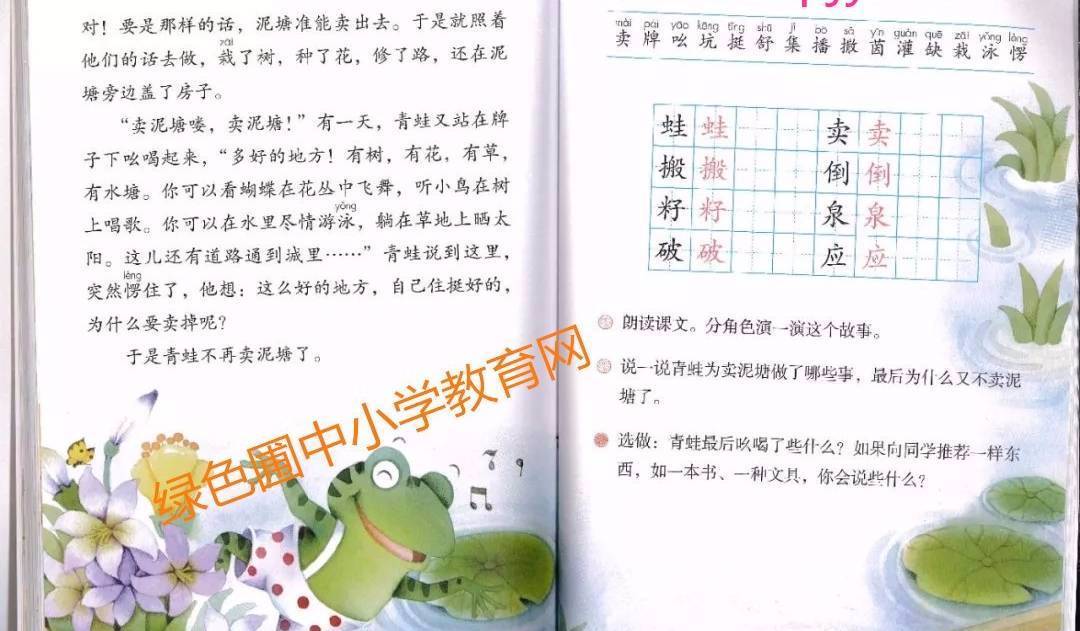 对！要是那样的话，泥塘准能卖出去。于是就照着
zāi
他们的话去做，栽了树，种了花，修了路，还在泥
塘旁边盖了房子。
“卖泥塘喽，卖泥塘！”有一天，青蛙又站在牌
子下吆喝起来，“多好的地方！有树，有花，有草，
有水塘。你可以看蝴蝶在花丛中飞舞，听小鸟在树
yǒng
上唱歌。你可以在水里尽情游泳，躺在草地上晒太
阳。这儿还有道路通到城里……”青蛙说到这里，
lèng
突然愣住了，他想：这么好的地方，自己住挺好的，
为什么要卖掉呢？
于是青蛙不再卖泥塘了。
绿色圃中小学教育网
mài pái yāo kēng tǐng shū jí bō sǎ yīn guàn quē zāi yǒng lèng
卖 牌 吆 坑 挺 舒 集 播 撒 茵 灌 缺 栽 泳 愣
蛙 蛙 卖 卖
搬 搬 倒 倒
籽 籽 泉 泉
破 破 应 应
朗读课文。分角色演一演这个故事。
说一说青蛙为卖泥塘做了哪些事，最后为什么又不卖泥
塘了。
选做：青蛙最后吆喝了些什么？如果向同学推荐一样东
西，如一本书、一种文具，你会说些什么？